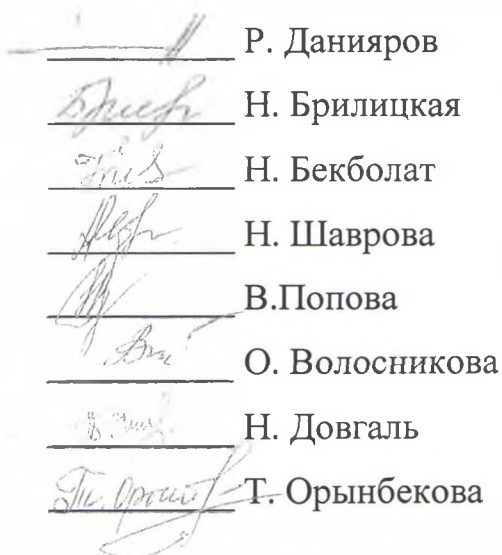 Р. Данияров
Н. Брилицкая
Н. Бекболат
Н. Шаврова
В.Попова
О. Волосникова
Н. Довгаль
Т. Орынбекова